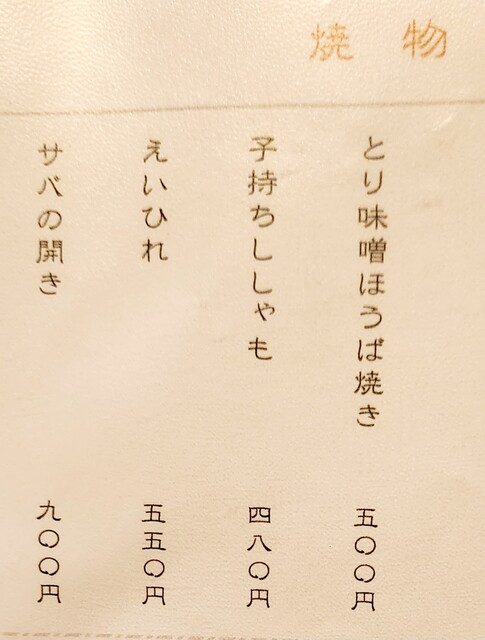 焼物
とり味噌ほうば焼き 五〇〇円
子持ちししゃも 四八〇円
えいひれ 五五〇円
サバの開き 九〇〇円